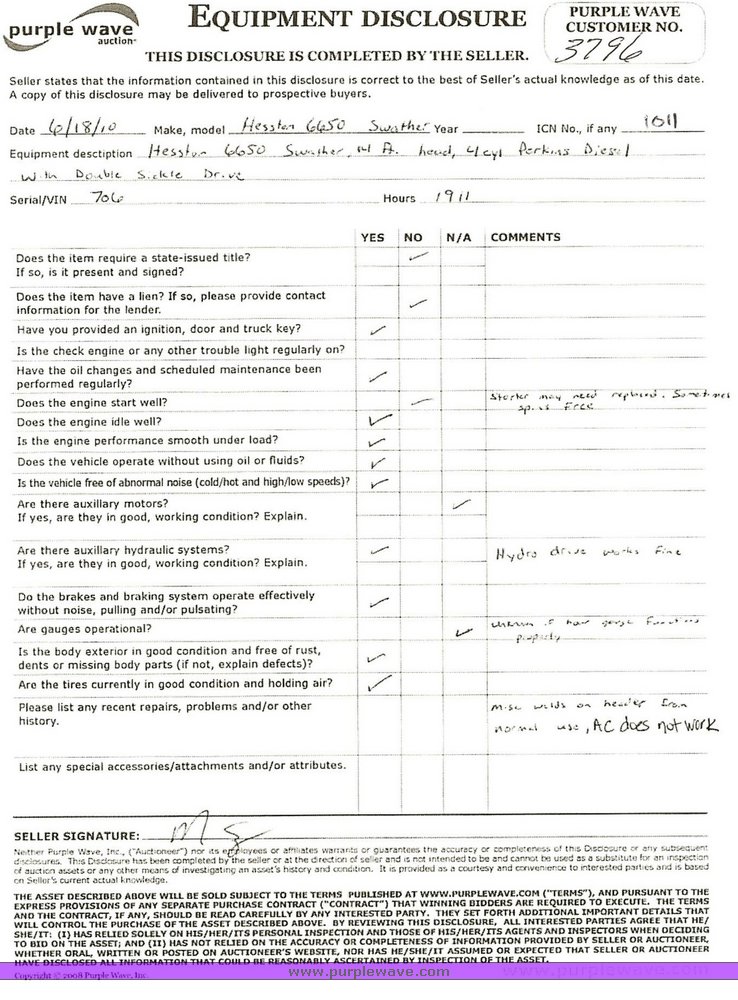 purple wave
auction
EQUIPMENT DISCLOSURE
THIS DISCLOSURE IS COMPLETED BY THE SELLER.
PURPLE WAVE
CUSTOMER NO.
3796
Seller states that the information contained in this disclosure is correct to the best of Seller's actual knowledge as of this date.
A copy of this disclosure may be delivered to prospective buyers.
Date 6/18/10 Make, model Hesston 6650 Swather Year ICN No., if any 1011
Equipment desctiption Hesston 6650 Swather, 14 ft. head, 4cyl Perkins Diesel
with Double Sickle Drive
Serial/VIN 706 Hours 1911
YES NO N/A COMMENTS
Does the item require a state-issued title?
If so, is it present and signed?
Does the item have a lien? If so, please provide contact
information for the lender.
Have you provided an ignition, door and truck key?
Is the check engine or any other trouble light regularly on?
Have the oil changes and scheduled maintenance been
performed regularly?
Does the engine start well? Starter may need replaced. Sometimes
spins Free
Does the engine idle well?
Is the engine performance smooth under load?
Does the vehicle operate without using oil or fluids?
Is the vehicle free of abnormal noise (cold/hot and high/low speeds)?
Are there auxillary motors?
If yes, are they in good, working condition? Explain.
Are there auxillary hydraulic systems? Hydro drive works Fine
If yes, are they in good, working condition? Explain.
Do the brakes and braking system operate effectively
without noise, pulling and/or pulsating?
Are gauges operational? if hour gauge Functions
properly
Is the body exterior in good condition and free of rust,
dents or missing body parts (if not, explain defects)?
Are the tires currently in good condition and holding air?
Please list any recent repairs, problems and/or other
history.
misc welds on header from
normal use, AC does not work
List any special accessories/attachments and/or attributes.
SELLER SIGNATURE:
Neither Purple Wave, Inc., ("Auctioneer") nor its employees or affiliates warrants or guarantees the accuracy or completeness of this Disclosure or any subsequent
disclosures. This Disclosure has been completed by the seller or at the direction of seller and is not intended to be and cannot be used as a substitute for an inspection
of auction assets or any other means of investigating an asset's history and condition. It is provided as a courtesy and convenience to interested parties and is based
on Seller's current actual knowledge.
THE ASSET DESCRIBED ABOVE WILL BE SOLD SUBJECT TO THE TERMS PUBLISHED AT WWW.PURPLEWAVE.COM ("TERMS"), AND PURSUANT TO THE
EXPRESS PROVISIONS OF ANY SEPARATE PURCHASE CONTRACT ("CONTRACT") THAT WINNING BIDDERS ARE REQUIRED TO EXECUTE. THE TERMS
AND THE CONTRACT, IF ANY, SHOULD BE READ CAREFULLY BY ANY INTERESTED PARTY. THEY SET FORTH ADDITIONAL IMPORTANT DETAILS THAT
WILL CONTROL THE PURCHASE OF THE ASSET DESCRIBED ABOVE. BY REVIEWING THIS DISCLOSURE, ALL INTERESTED PARTIES AGREE THAT HE/
SHE/IT: (I) HAS RELIED SOLELY ON HIS/HER/ITS PERSONAL INSPECTION AND THOSE OF HIS/HER/ITS AGENTS AND INSPECTORS WHEN DECIDING
TO BID ON THE ASSET; AND (II) HAS NOT RELIED ON THE ACCURACY OR COMPLETENESS OF INFORMATION PROVIDED BY SELLER OR AUCTIONEER,
WHETHER ORAL, WRITTEN OR POSTED ON AUCTIONEER'S WEBSITE, NOR HAS HE/SHE/IT ASSUMED OR EXPECTED THAT SELLER OR AUCTIONEER
HAVE DISCLOSED ALL INFORMATION THAT COULD BE REASONABLY ASCERTAINED BY INSPECTION OF THE ASSET.
Copyright © 2008 Purple Wave, Inc.
www.purplewave.com